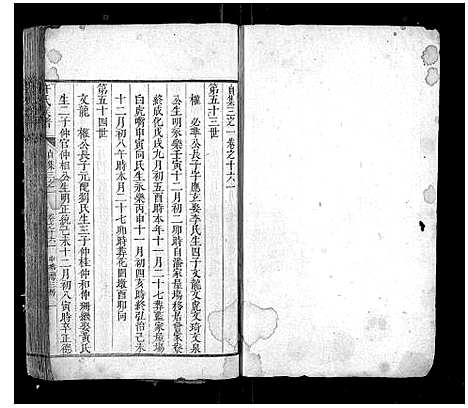 貞集三之一卷之十六一
第五十三世
權 必準公長子字應玄娶李氏生四子文龍文 文琦文泉
公生明永樂壬寅十二月初二卯時自潘家屋場移居會家
終成化戊戌九月初五酉時本年十一月二十七葬藍家屋場
白虎嘴申寅向氏生永樂丙申十一月初四亥時終弘治己未
十二月初八午時本月二十七卯時葬花園墩酉卯向
第五十四世
文龍 權公長子元配劉氏生三子仲桂仲和仲珊繼娶黃氏
生二子仲官仲相公生明正統己未十二月初八寅時卒正德
氏 譜
貞集三之一
卷之十六